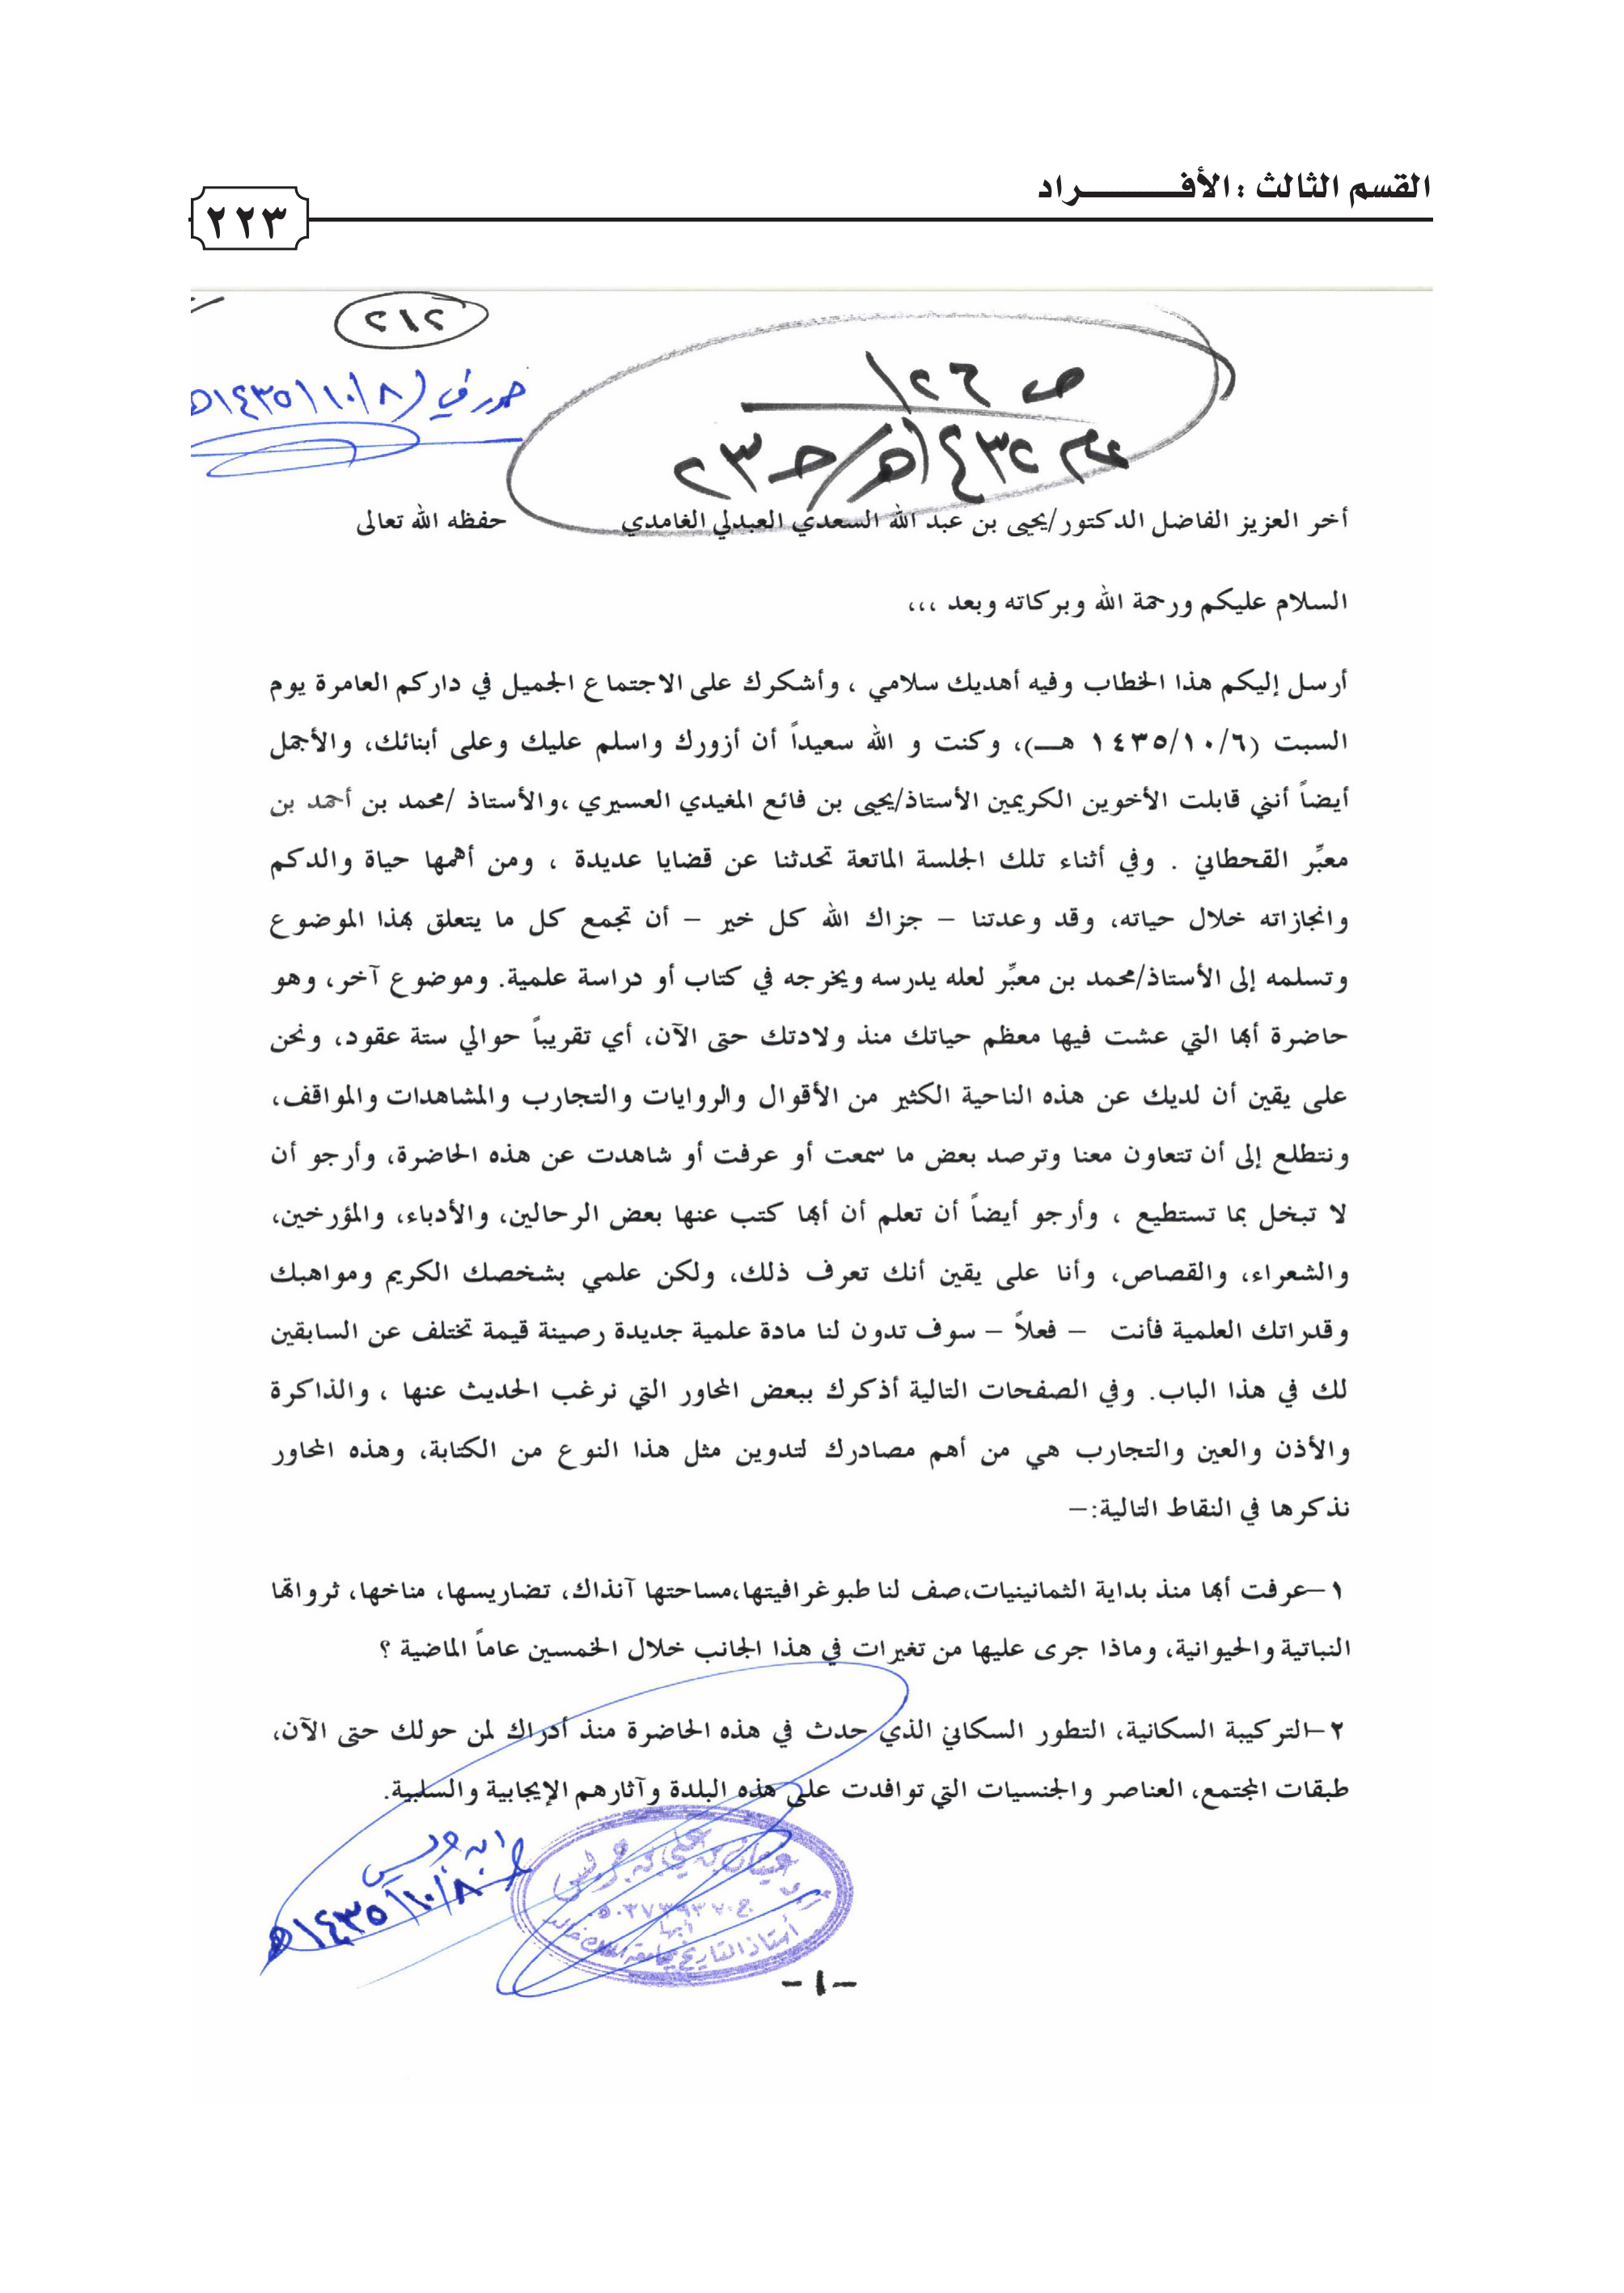 القسم الثالث : الأفـــــــــراد
٢٢٣
٢١٢
حرر في ١٤٣٥/١٠/٨هـ
ص ١٢٦
١٤٣٢هـ/حـ ٢٣
أخر العزيز الفاضل الدكتور/يحيى بن عبد الله السعدي العبدلي الغامدي حفظه الله تعالى
السلام عليكم ورحمة الله وبركاته وبعد ،،،
أرسل إليكم هذا الخطاب وفيه أهديك سلامي ، وأشكرك على الاجتماع الجميل في داركم العامرة يوم
السبت (١٤٣٥/١٠/٦ هـــ)، وكنت و الله سعيداً أن أزورك واسلم عليك وعلى أبنائك، والأجمل
أيضاً أنني قابلت الأخوين الكريمين الأستاذ/يحيى بن فائع المغيدي العسيري ،والأستاذ /محمد بن أحمد بن
معبِّر القحطاني . وفي أثناء تلك الجلسة الماتعة تحدثنا عن قضايا عديدة ، ومن أهمها حياة والدكم
وانجازاته خلال حياته، وقد وعدتنا – جزاك الله كل خير – أن تجمع كل ما يتعلق بهذا الموضوع
وتسلمه إلى الأستاذ/محمد بن معبِّر لعله يدرسه ويخرجه في كتاب أو دراسة علمية. وموضوع آخر، وهو
حاضرة أبها التي عشت فيها معظم حياتك منذ ولادتك حتى الآن، أي تقريباً حوالي ستة عقود، ونحن
على يقين أن لديك عن هذه الناحية الكثير من الأقوال والروايات والتجارب والمشاهدات والمواقف،
ونتطلع إلى أن تتعاون معنا وترصد بعض ما سمعت أو عرفت أو شاهدت عن هذه الحاضرة، وأرجو أن
لا تبخل بما تستطيع ، وأرجو أيضاً أن تعلم أن أبها كتب عنها بعض الرحالين، والأدباء، والمؤرخين،
والشعراء، والقصاص، وأنا على يقين أنك تعرف ذلك، ولكن علمي بشخصك الكريم ومواهبك
وقدراتك العلمية فأنت – فعلاً – سوف تدون لنا مادة علمية جديدة رصينة قيمة تختلف عن السابقين
لك في هذا الباب. وفي الصفحات التالية أذكرك ببعض المحاور التي نرغب الحديث عنها ، والذاكرة
والأذن والعين والتجارب هي من أهم مصادرك لتدوين مثل هذا النوع من الكتابة، وهذه المحاور
نذكرها في النقاط التالية:–
١–عرفت أبها منذ بداية الثمانينيات،صف لنا طبوغرافيتها،مساحتها آنذاك، تضاريسها، مناخها، ثرواتها
النباتية والحيوانية، وماذا جرى عليها من تغيرات في هذا الجانب خلال الخمسين عاماً الماضية ؟
٢–التركيبة السكانية، التطور السكاني الذي حدث في هذه الحاضرة منذ أدراك لمن حولك حتى الآن،
طبقات المجتمع، العناصر والجنسيات التي توافدت على هذه البلدة وآثارهم الإيجابية والسلبية.
ابن جريس
١٤٣٥/١٠/٨هـ
غيثان بن علي بن جريس
أبها
أستاذ التاريخ بجامعة الملك خالد
-١-